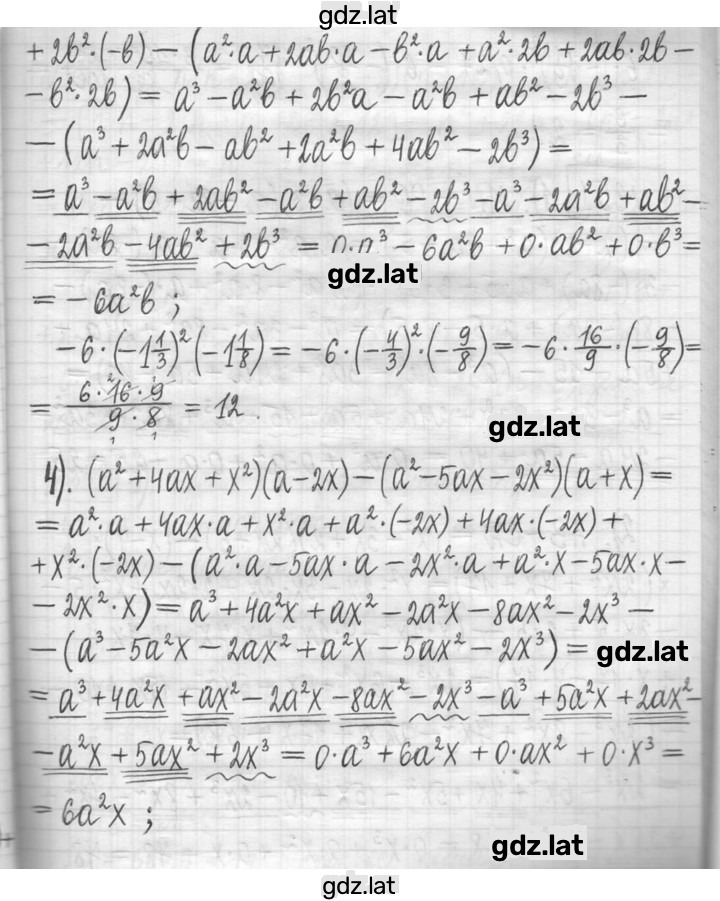 gdz.lat
+ 2b²·(-b) - (a²·a + 2ab·a - b²·a + a²·2b + 2ab·2b -
- b²·2b) = a³ - a²b + 2b²a - a²b + ab² - 2b³ -
- (a³ + 2a²b - ab² + 2a²b + 4ab² - 2b³) =
= a³ - a²b + 2ab² - a²b + ab² - 2b³ - a³ - 2a²b + ab² -
- 2a²b - 4ab² + 2b³ = 0·a³ - 6a²b + 0·ab² + 0·b³ =
gdz.lat
= -6a²b ;
-6·(-1 1/3)²(-1 1/8) = -6·(-4/3)²·(-9/8) = -6·16/9·(-9/8) =
= 6·16·9 / 9·8 = 12.
gdz.lat
4). (a² + 4ax + x²)(a - 2x) - (a² - 5ax - 2x²)(a + x) =
= a²·a + 4ax·a + x²·a + a²·(-2x) + 4ax·(-2x) +
+ x²·(-2x) - (a²·a - 5ax·a - 2x²·a + a²·x - 5ax·x -
- 2x²·x) = a³ + 4a²x + ax² - 2a²x - 8ax² - 2x³ -
- (a³ - 5a²x - 2ax² + a²x - 5ax² - 2x³) = gdz.lat
= a³ + 4a²x + ax² - 2a²x - 8ax² - 2x³ - a³ + 5a²x + 2ax² -
- a²x + 5ax² + 2x³ = 0·a³ + 6a²x + 0·ax² + 0·x³ =
= 6a²x ;
gdz.lat
gdz.lat